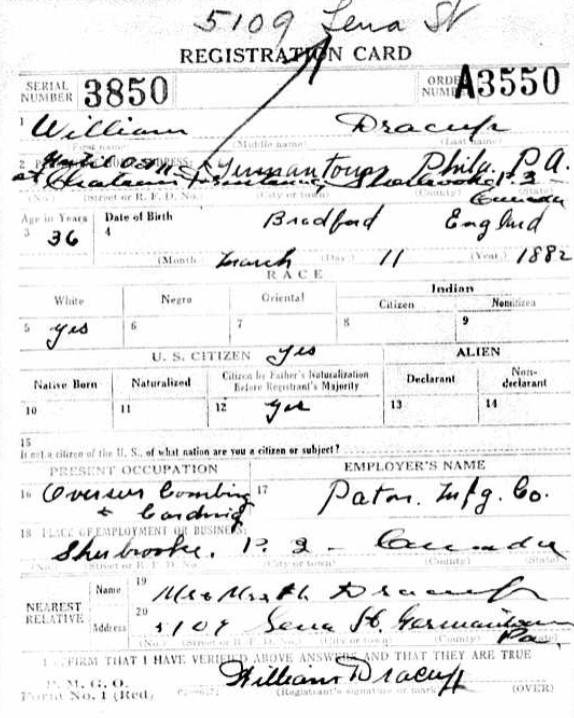 5109 Lena St
REGISTRATION CARD
SERIAL NUMBER 3850 ORDER NUMBER A3550
1 William Dracup
(First name) (Middle name) (Last name)
2 Germantown Phila. P.A.
at Sherbrooke P.Q. Canada
(No.) (Street or R. F. D. No.) (City or town) (County) (State)
Age in Years Date of Birth
3 36 4 Bradford England
(Month) March (Day) 11 (Year) 1882
RACE
White Negro Oriental Indian
Citizen Noncitizen
5 yes 6 7 8 9
U. S. CITIZEN yes ALIEN
Native Born Naturalized Citizen by Father's Naturalization Before Registrant's Majority Declarant Non-declarant
10 11 12 yes 13 14
15
If not a citizen of the U. S., of what nation are you a citizen or subject?
PRESENT OCCUPATION EMPLOYER'S NAME
16 Overseer Combing & Carding 17 Paton. Mfg. Co.
18 PLACE OF EMPLOYMENT OR BUSINESS:
Sherbrooke. P. Q - Canada
(No.) (Street or R. F. D. No.) (City or town) (County) (State)
NEAREST RELATIVE Name 19 Mrs Dracup
Address 20 5109 Lena St. Germantown Pa.
(No.) (Street or R. F. D. No.) (City or town) (County) (State)
I AFFIRM THAT I HAVE VERIFIED ABOVE ANSWERS AND THAT THEY ARE TRUE
P. M. G. O.
Form No. 1 (Red) William Dracup
(Registrant's signature or mark) (OVER)